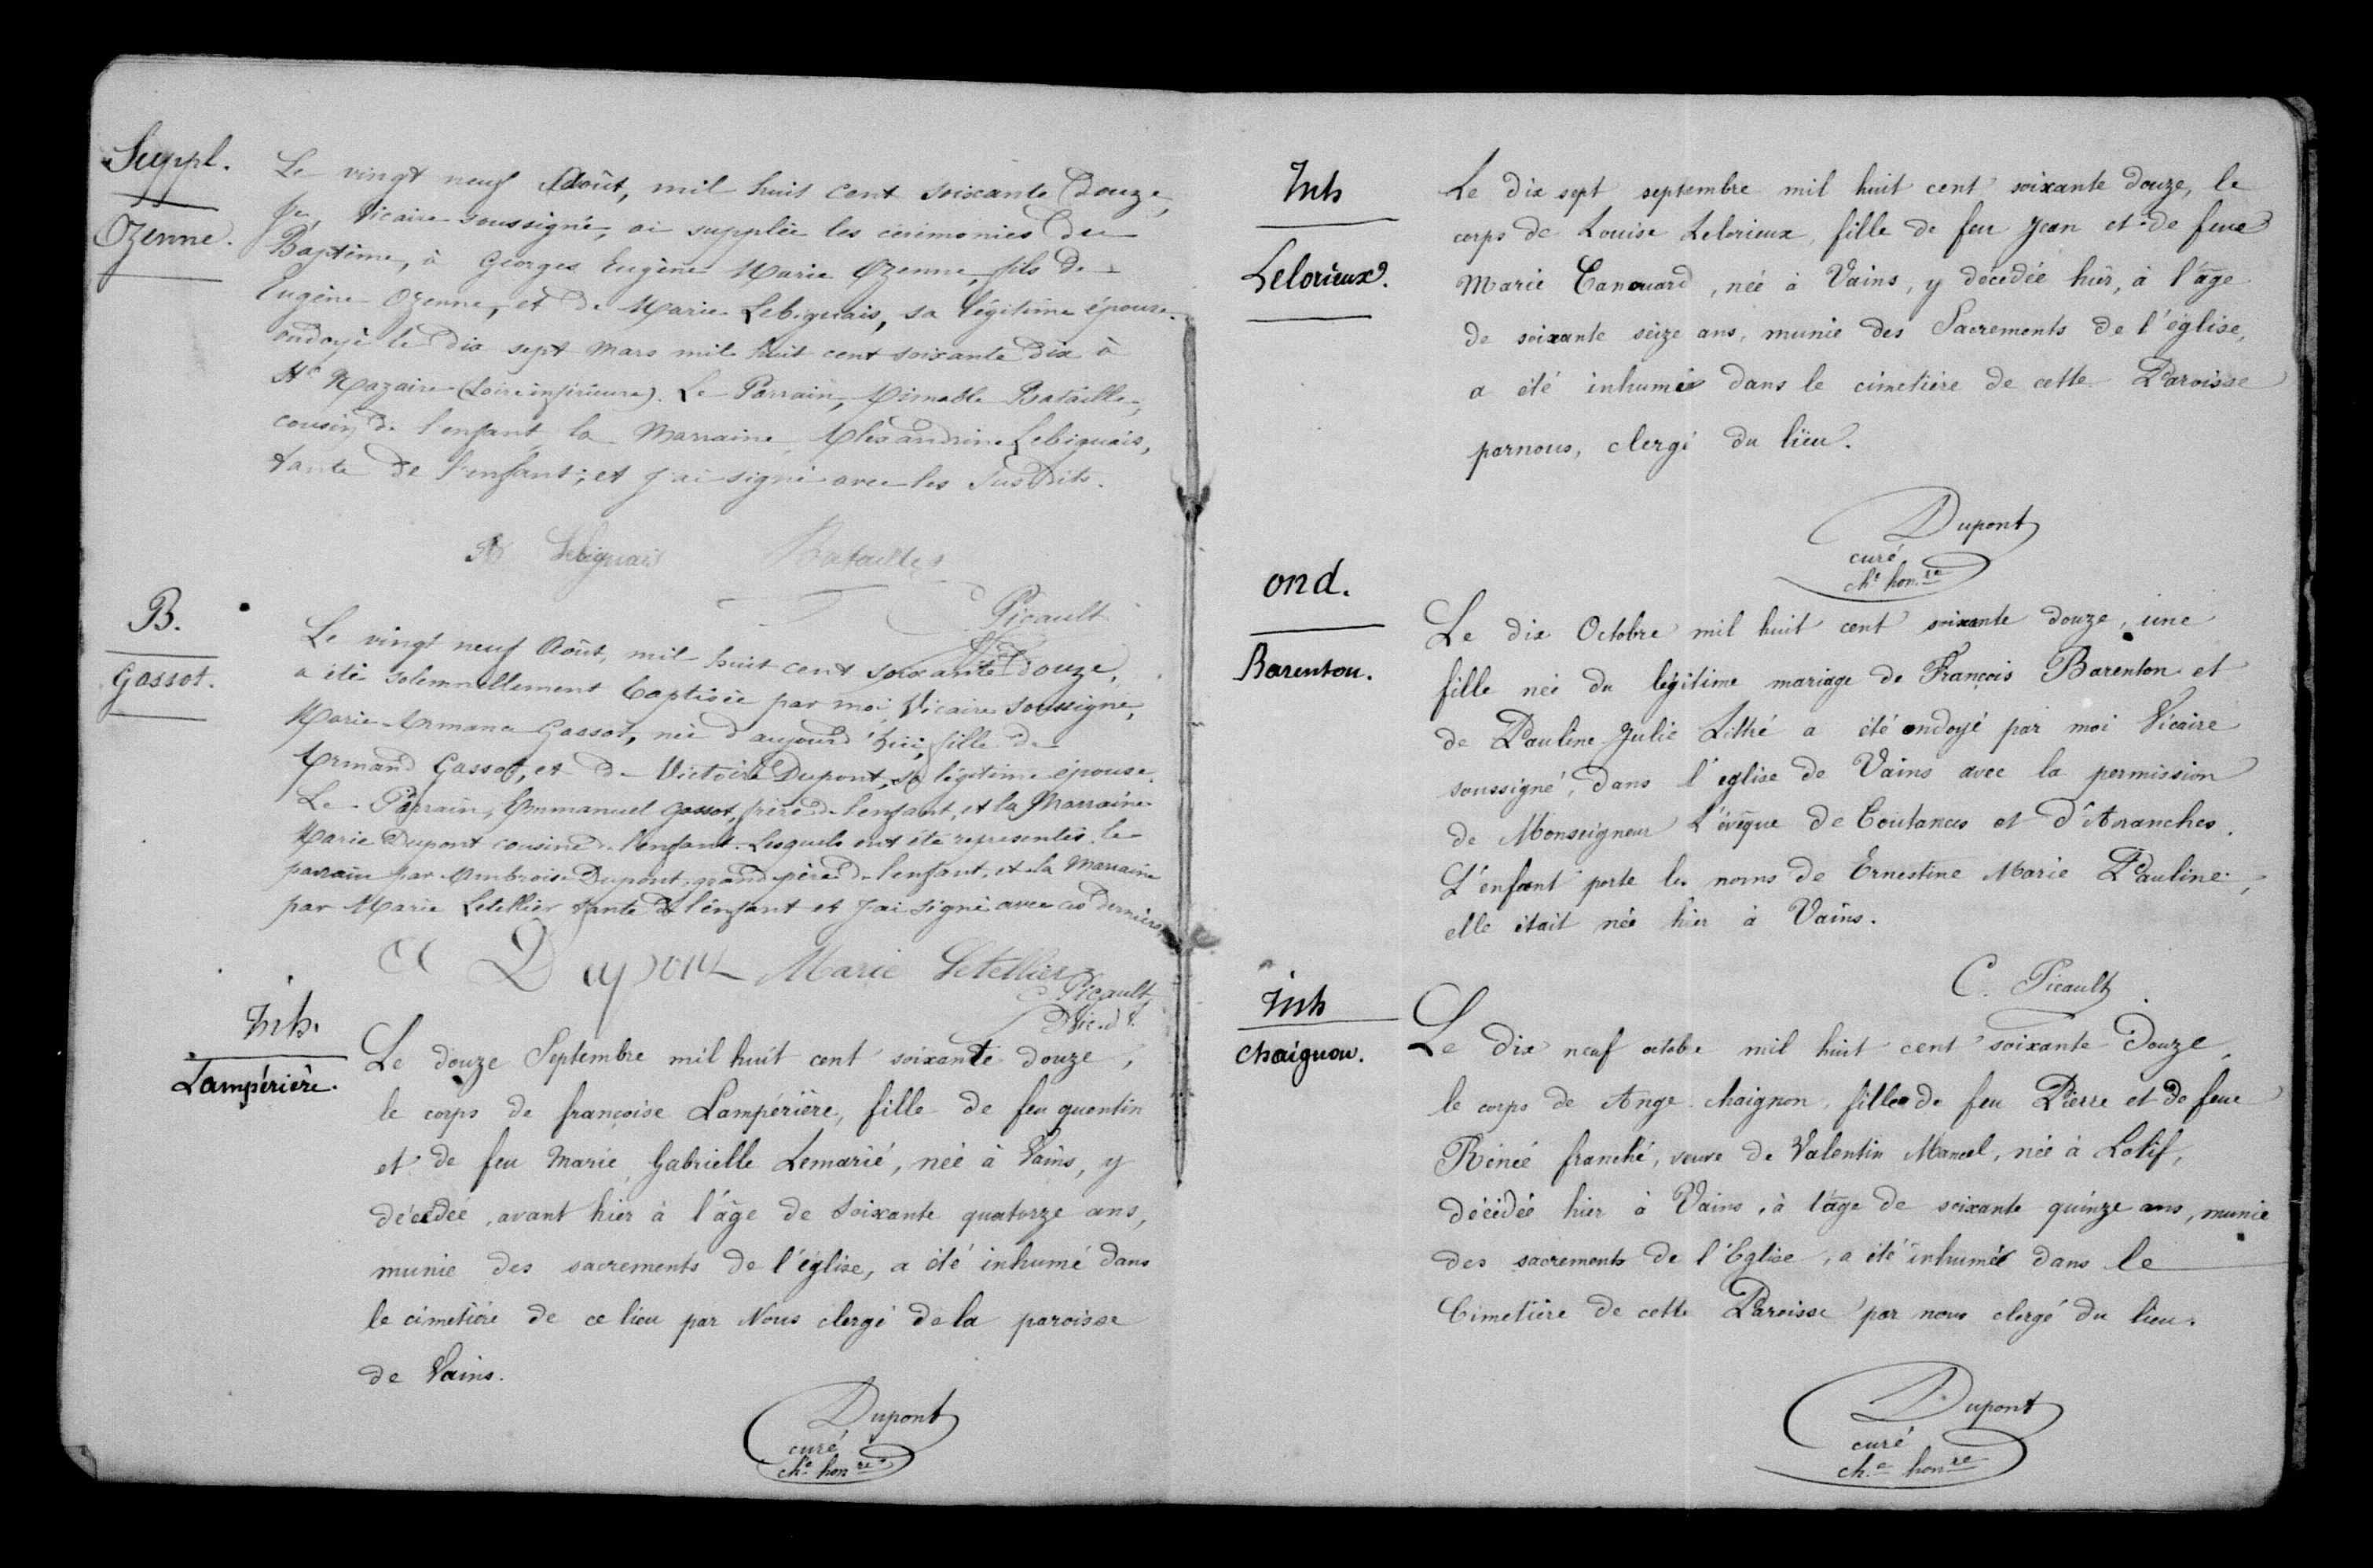 Suppl.
Ozenne.
Le vingt neuf Août, mil huit cent soixante douze,
je, Vicaire soussigné, ai supplée les cérémonies du
Baptême, à Georges Eugène Marie Ozenne, fils de
Eugène Ozenne, et de Marie Lebiguais, sa légitime épouse.
ondoyé le dix sept Mars mil huit cent soixante dix à
St Nazaire (Loire inférieure). Le Parrain, Aimable Bataille,
cousin de l'enfant la Marraine Alexandrine Lebiguais,
tante de l'enfant; et j'ai signé avec les susdits.
A Lebiguais Bataille
C Picault
B.
Gassot.
Le vingt neuf Août, mil huit cent soixante douze,
a été solemnellement baptisée par moi, Vicaire soussigné,
Marie Armance Gassot, née d'aujourd'hui, fille de
Armand Gassot, et de Victoire Dupont, sa légitime épouse.
Le Parrain, Emmanuel Gassot, frère de l'enfant, et la Marraine
Marie Dupont cousine de l'enfant. Lesquels ont été representés. le
parrain par Ambroise Dupont, grand père de l'enfant, et la Marraine
par Marie Letellier tante de l'enfant et j'ai signé avec ces derniers.
A Dupont Marie Letellier
C Picault
Vic.
Inh.
Lampérière.
Le douze Septembre mil huit cent soixante douze,
le corps de françoise Lampérière, fille de feu quentin
et de feu Marie Gabrielle Lemarié, née à Vains, y
décédée, avant hier à l'âge de soixante quatorze ans,
munie des sacrements de l'église, a été inhumé dans
le cimetière de ce lieu par Nous clergé de la paroisse
de Vains.
Dupont
curé
che honre
Inh
Lelorieux.
Le dix sept septembre mil huit cent soixante douze, le
corps de Louise Lelorieux, fille de feu Jean et de feue
Marie Canouard, née à Vains, y décédée hier, à l'âge
de soixante seize ans, munie des Sacrements de l'église,
a été inhumée dans le cimetière de cette Paroisse
parnous, clergé du lieu.
Dupont
curé
che honre
ond.
Barenton.
Le dix Octobre mil huit cent soixante douze, une
fille née du légitime mariage de François Barenton et
de Pauline Julie Littré a été ondoyé par moi Vicaire
soussigné, dans l'église de Vains avec la permission
de Monseigneur L'évêque de Coutances et d'Avranches.
L'enfant porte les noms de Ernestine Marie Pauline;
elle était née hier à Vains.
C. Picault
Inh
Chaignon.
Le dix neuf octobre mil huit cent soixante Douze,
le corps de Ange Chaignon, fille de feu Pierre et de feue
Rénée franché, veuve de Valentin Mancel, née à Lolif,
décédée hier à Vains, à l'âge de soixante quinze ans, munie
des sacrements de l'Eglise, a été inhumée dans le
Cimetière de cette Paroisse par nous clergé du lieu.
Dupont
curé
che honre